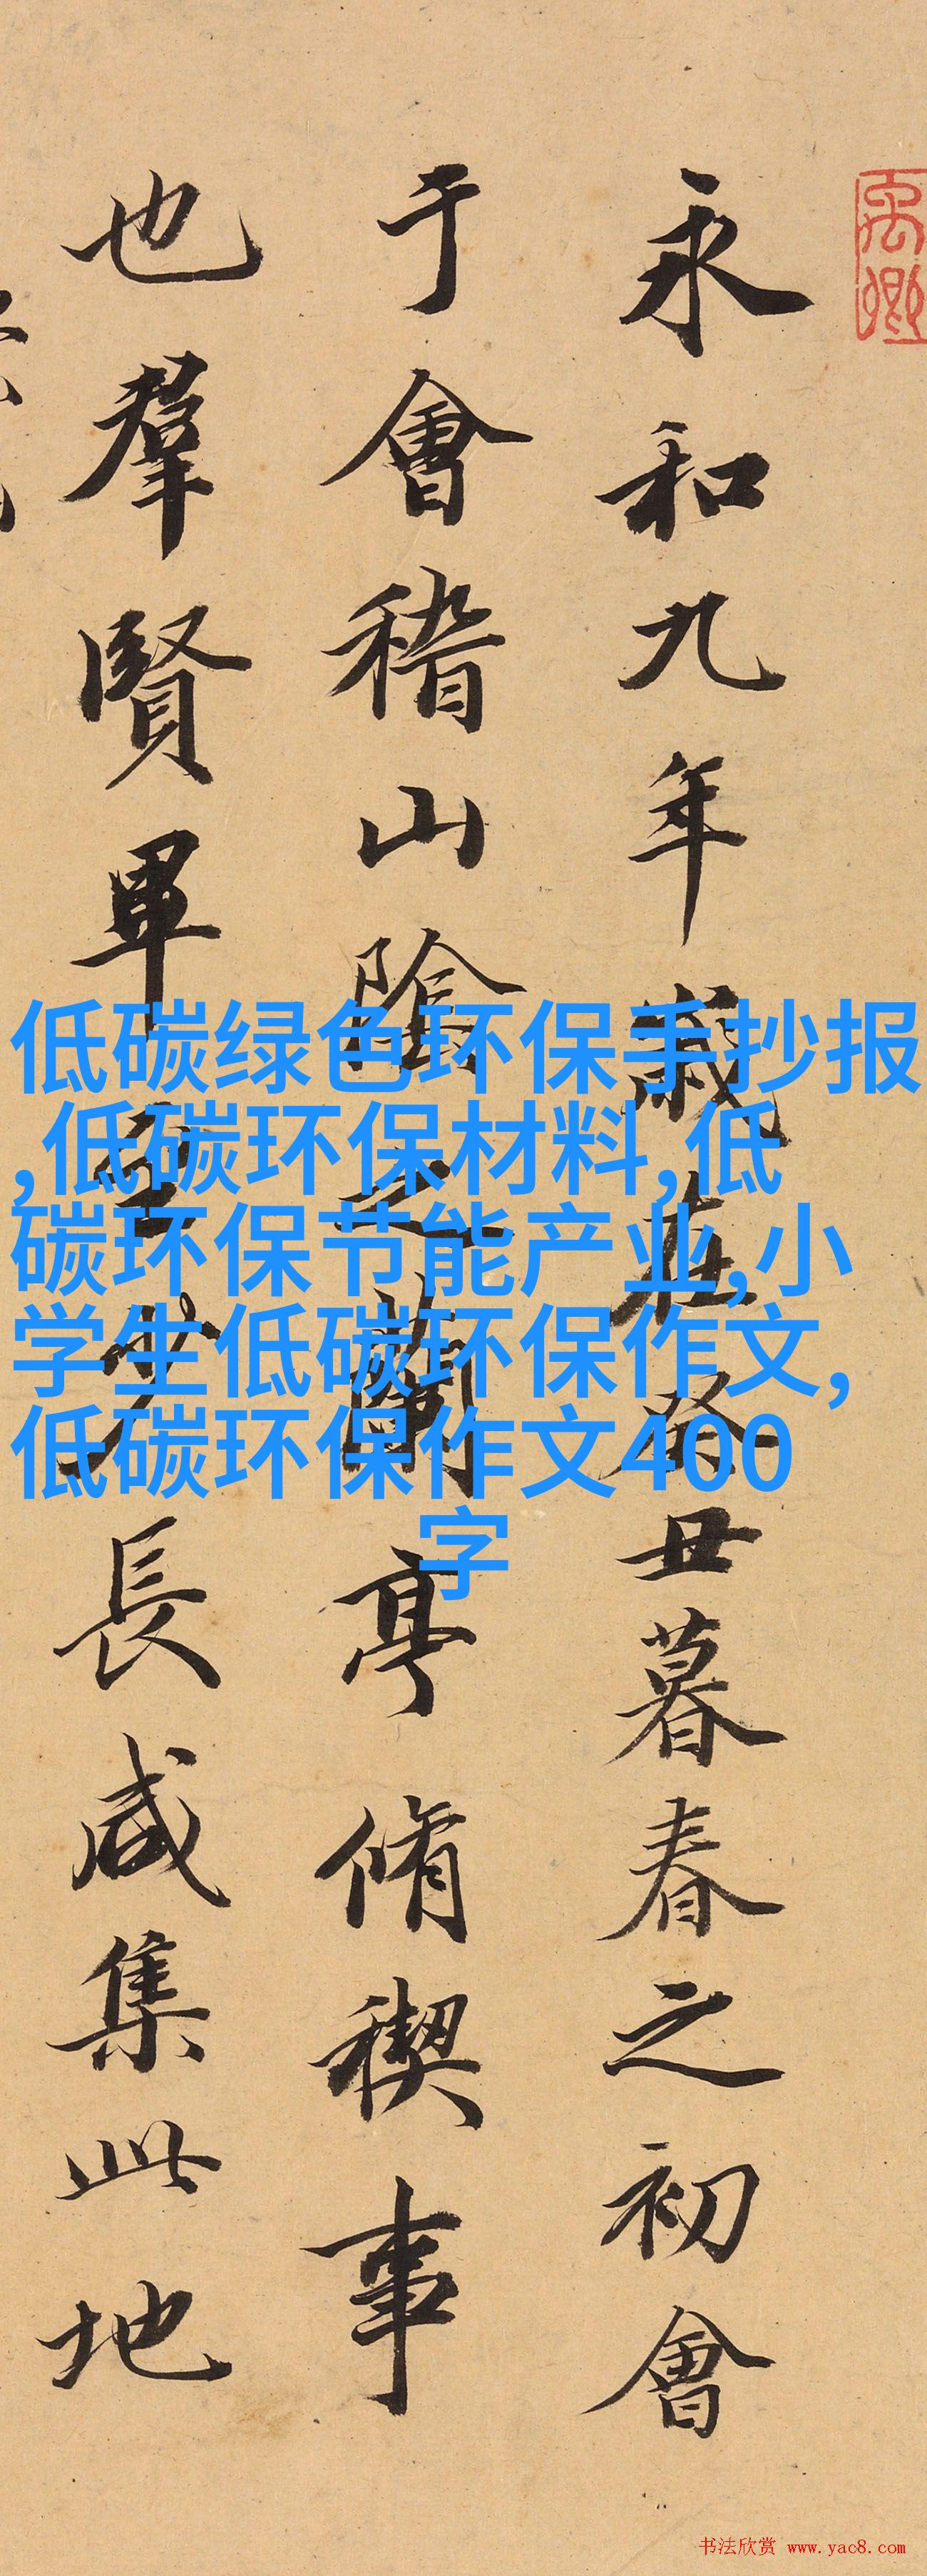 永和九年歲在癸丑暮春之初會
于會稽山陰之蘭亭脩稧事
也羣賢畢至少長咸集此地
低碳绿色环保手抄报
,低碳环保材料,低
碳环保节能产业,小
学生低碳环保作文,
低碳环保作文400
字
书法欣赏 www.yac8.com